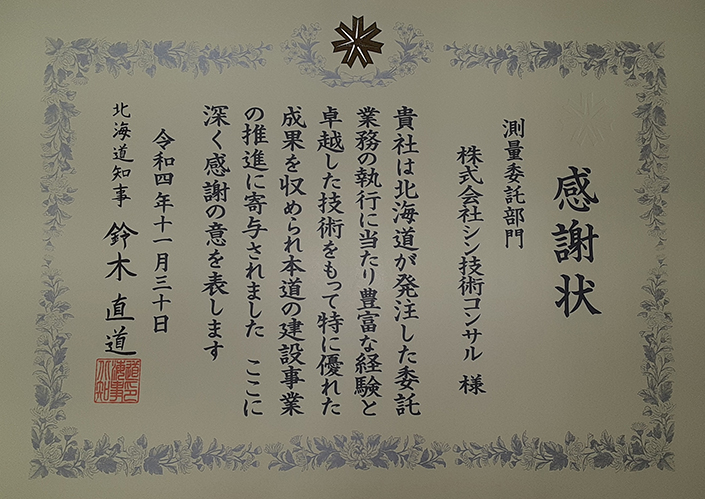 感謝状
測量委託部門
株式会社シン技術コンサル 様
貴社は北海道が発注した委託
業務の執行に当たり豊富な経験と
卓越した技術をもって特に優れた
成果を収められ本道の建設事業
の推進に寄与されました ここに
深く感謝の意を表します
令和四年十一月三十日
北海道知事 鈴木直道